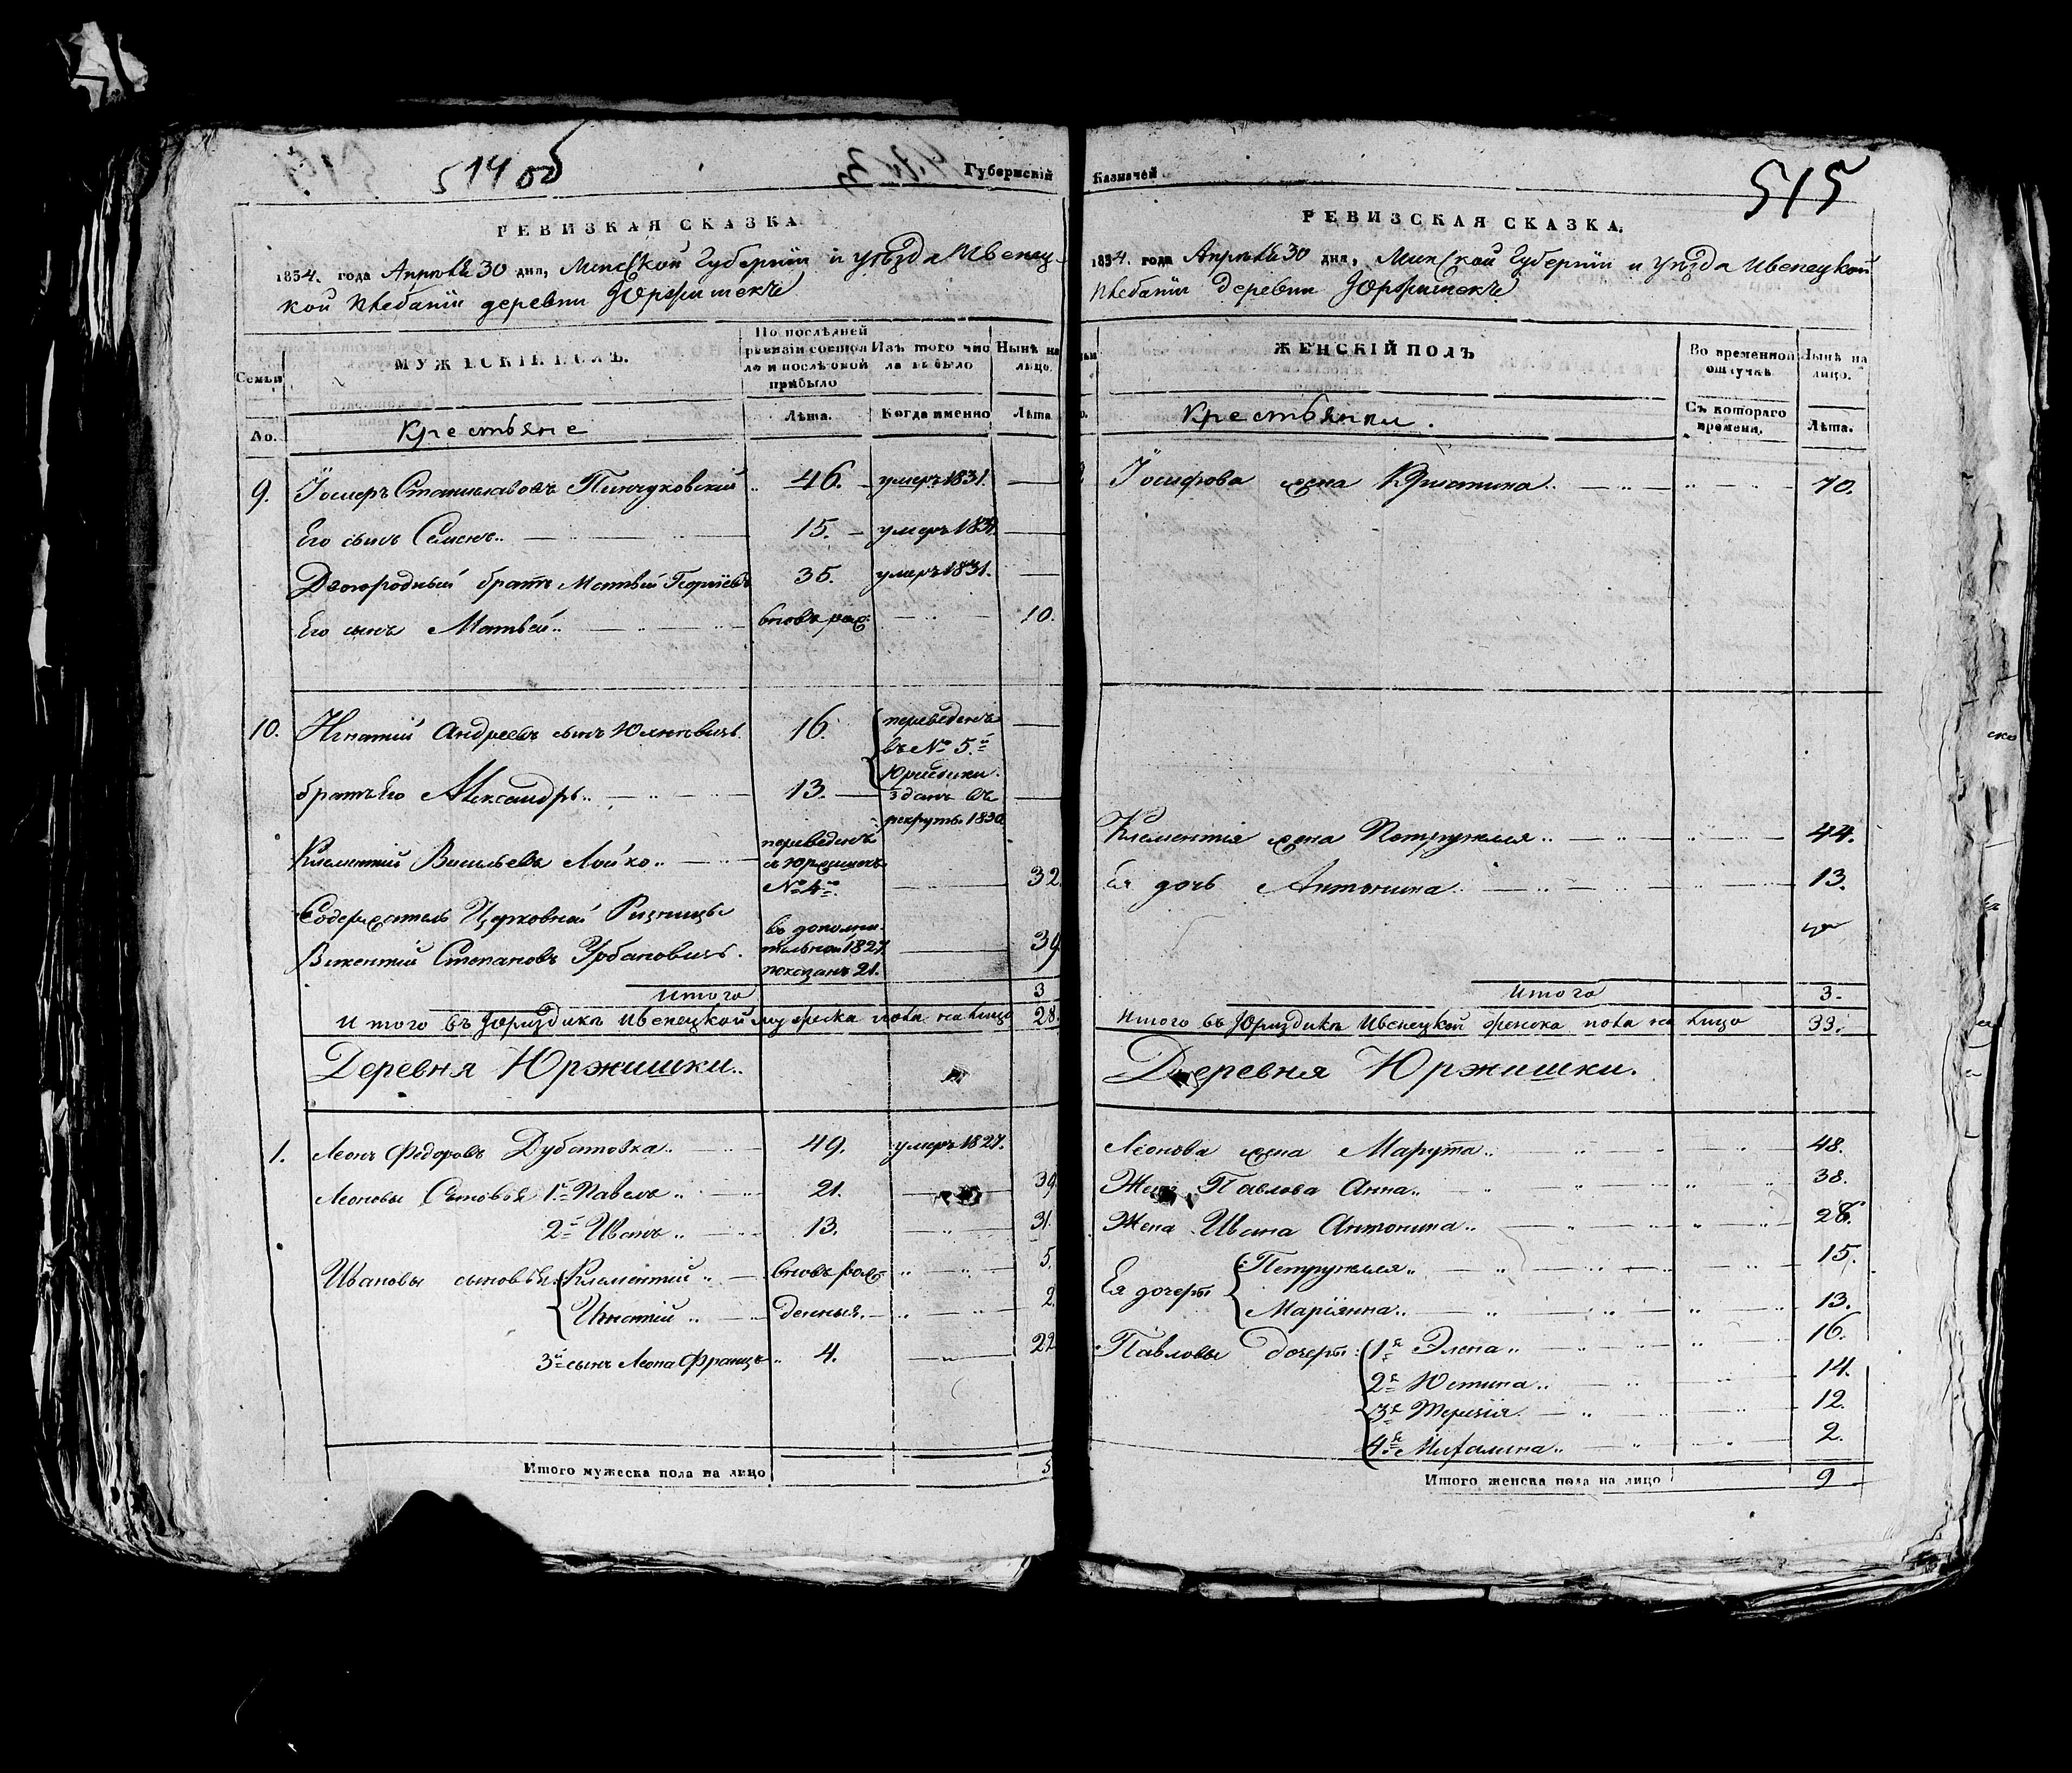 514 об
Губернскій
РЕВИЗКАЯ СКАЗКА
1834. года Апрѣля 30 дня, Минской Губерніи и уѣзда Ивенец-
кой Плебаніи деревни Юржишекъ
Семьи
МУЖЕСКІЙ ПОЛЪ.
По послѣдней ревизіи состоя ло и послѣ оной прибыло
Изъ того чис ла выбыло
Нынѣ на лицо.
No.
Крестьяне
Лѣта.
Когда именно
Лѣта
9. Іосифъ Станиславовъ Пинчуковскій 46. умеръ 1831.
Его сынъ Семенъ 15. умеръ 1831.
Двоюродный братъ Матвѣй Георгіевъ 35. умеръ 1831.
Его сынъ Матвѣй вновь рож: 10.
10. Игнатій Андреевъ сынъ Юхневичъ 16. переведенъ
въ № 5й
Юриздики.
братъ Его Александръ 13. зданъ въ
рекруты 1830
Клементій Васильевъ Лойко переведенъ
съ Юржишекъ
№ 4го 32
Содержатель Церковной Ризницы
Викентій Степановъ Урбановичъ. въ дополни-
тельной 1827
показанъ 21. 39
Итого 3
Итого въ Юриздикѣ Ивенецкой мужеска пола на лицо 28.
Деревня Юржишки.
1. Леонъ Федоровъ Дубатовка 49. умеръ 1827.
Леоновы Сыновья 1й Павелъ 21. 39
2й Иванъ 13. 31.
Ивановы сыновья Клементій вновь рож- 5.
Игнатій денныя. 2.
3й сынъ Леона Францъ 4. 22
Итого мужеска пола на лицо 5
Казначей
515
РЕВИЗСКАЯ СКАЗКА.
1834. года Апрѣля 30 дня, Минской Губерніи и Уѣзда Ивенецкой
Плебаніи деревни Юржишекъ
ЖЕНСКІЙ ПОЛЪ
Во временной отлучкѣ
Нынѣ на лицо.
Крестьянки.
Съ котораго времени.
Лѣта.
Іосифова жена Кристина 70.
Клементія жена Петрунеля 44.
Ея дочь Антонина 13.
Итого 3.
Итого въ Юриздикѣ Ивенецкой женска пола на лицо 33.
Деревня Юржишки.
Леонова жена Марута 48.
Жена Павлова Анна 38.
Жена Ивана Антонина 28.
Ея дочери Петрунеля 15.
Маріянна 13.
Павловы дочери 1я Элена 16.
2я Юстина 14.
3я Терезія 12.
4я Михалина 2.
Итого женска пола на лицо 9